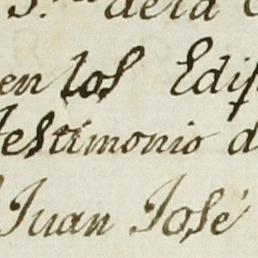 S.ra de la
en los Edif
Testimonio d
Juan José